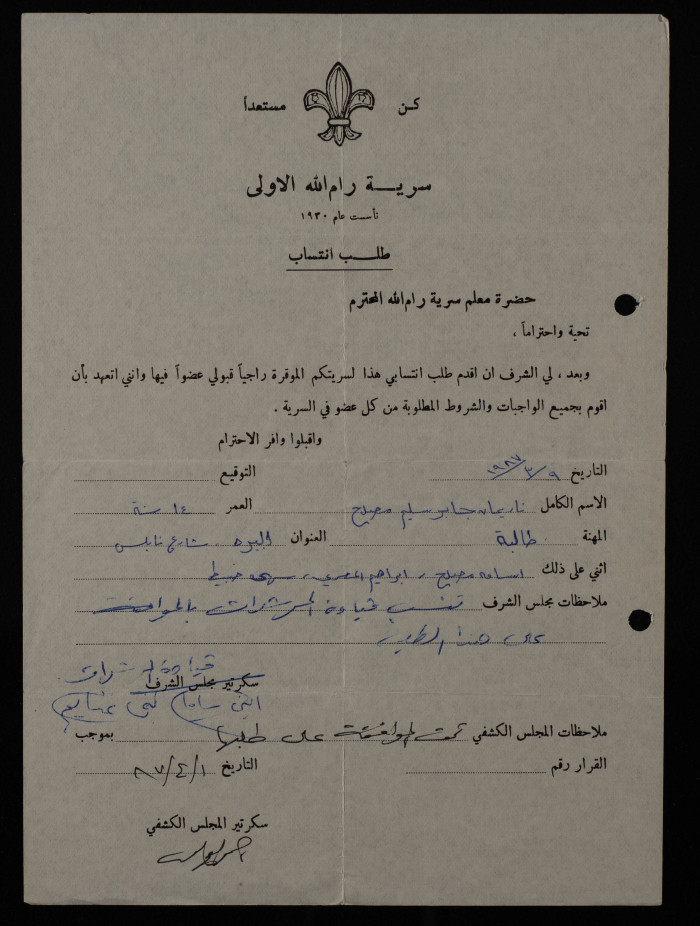 كن مستعدا
سريـــة رام الله الاولى
تأسست عام ١٩٣٠
طلـــب انتساب
حضرة معلم سرية رام الله المحترم
تحية واحتراماً ،
وبعد ، لي الشرف ان اقدم طلب انتسابي هذا لسريتكم الموقرة راجياً قبولي عضواً فيها وانني اتعهد بأن
اقوم بجميع الواجبات والشروط المطلوبة من كل عضو في السرية .
واقبلوا وافر الاحترام
التاريخ ٩/٣/١٩٨٧ التوقيع
الاسم الكامل ناريمان جابر سليم مصلح العمر ١٤ سنة
المهنة طالبة العنوان البيره . شارع نابلس
اثني على ذلك اسامه مصلح ، ابراهيم المصري ، سهى
ملاحظات مجلس الشرف تنسب قيادة المرشدات بالموافقة
على هذا الطلب
قيادة المرشدات
سكرتير مجلس الشرف
ملاحظات المجلس الكشفي تمت الموافقة على طلبها بموجب
القرار رقم التاريخ ٨٧/٤/١
سكرتير المجلس الكشفي